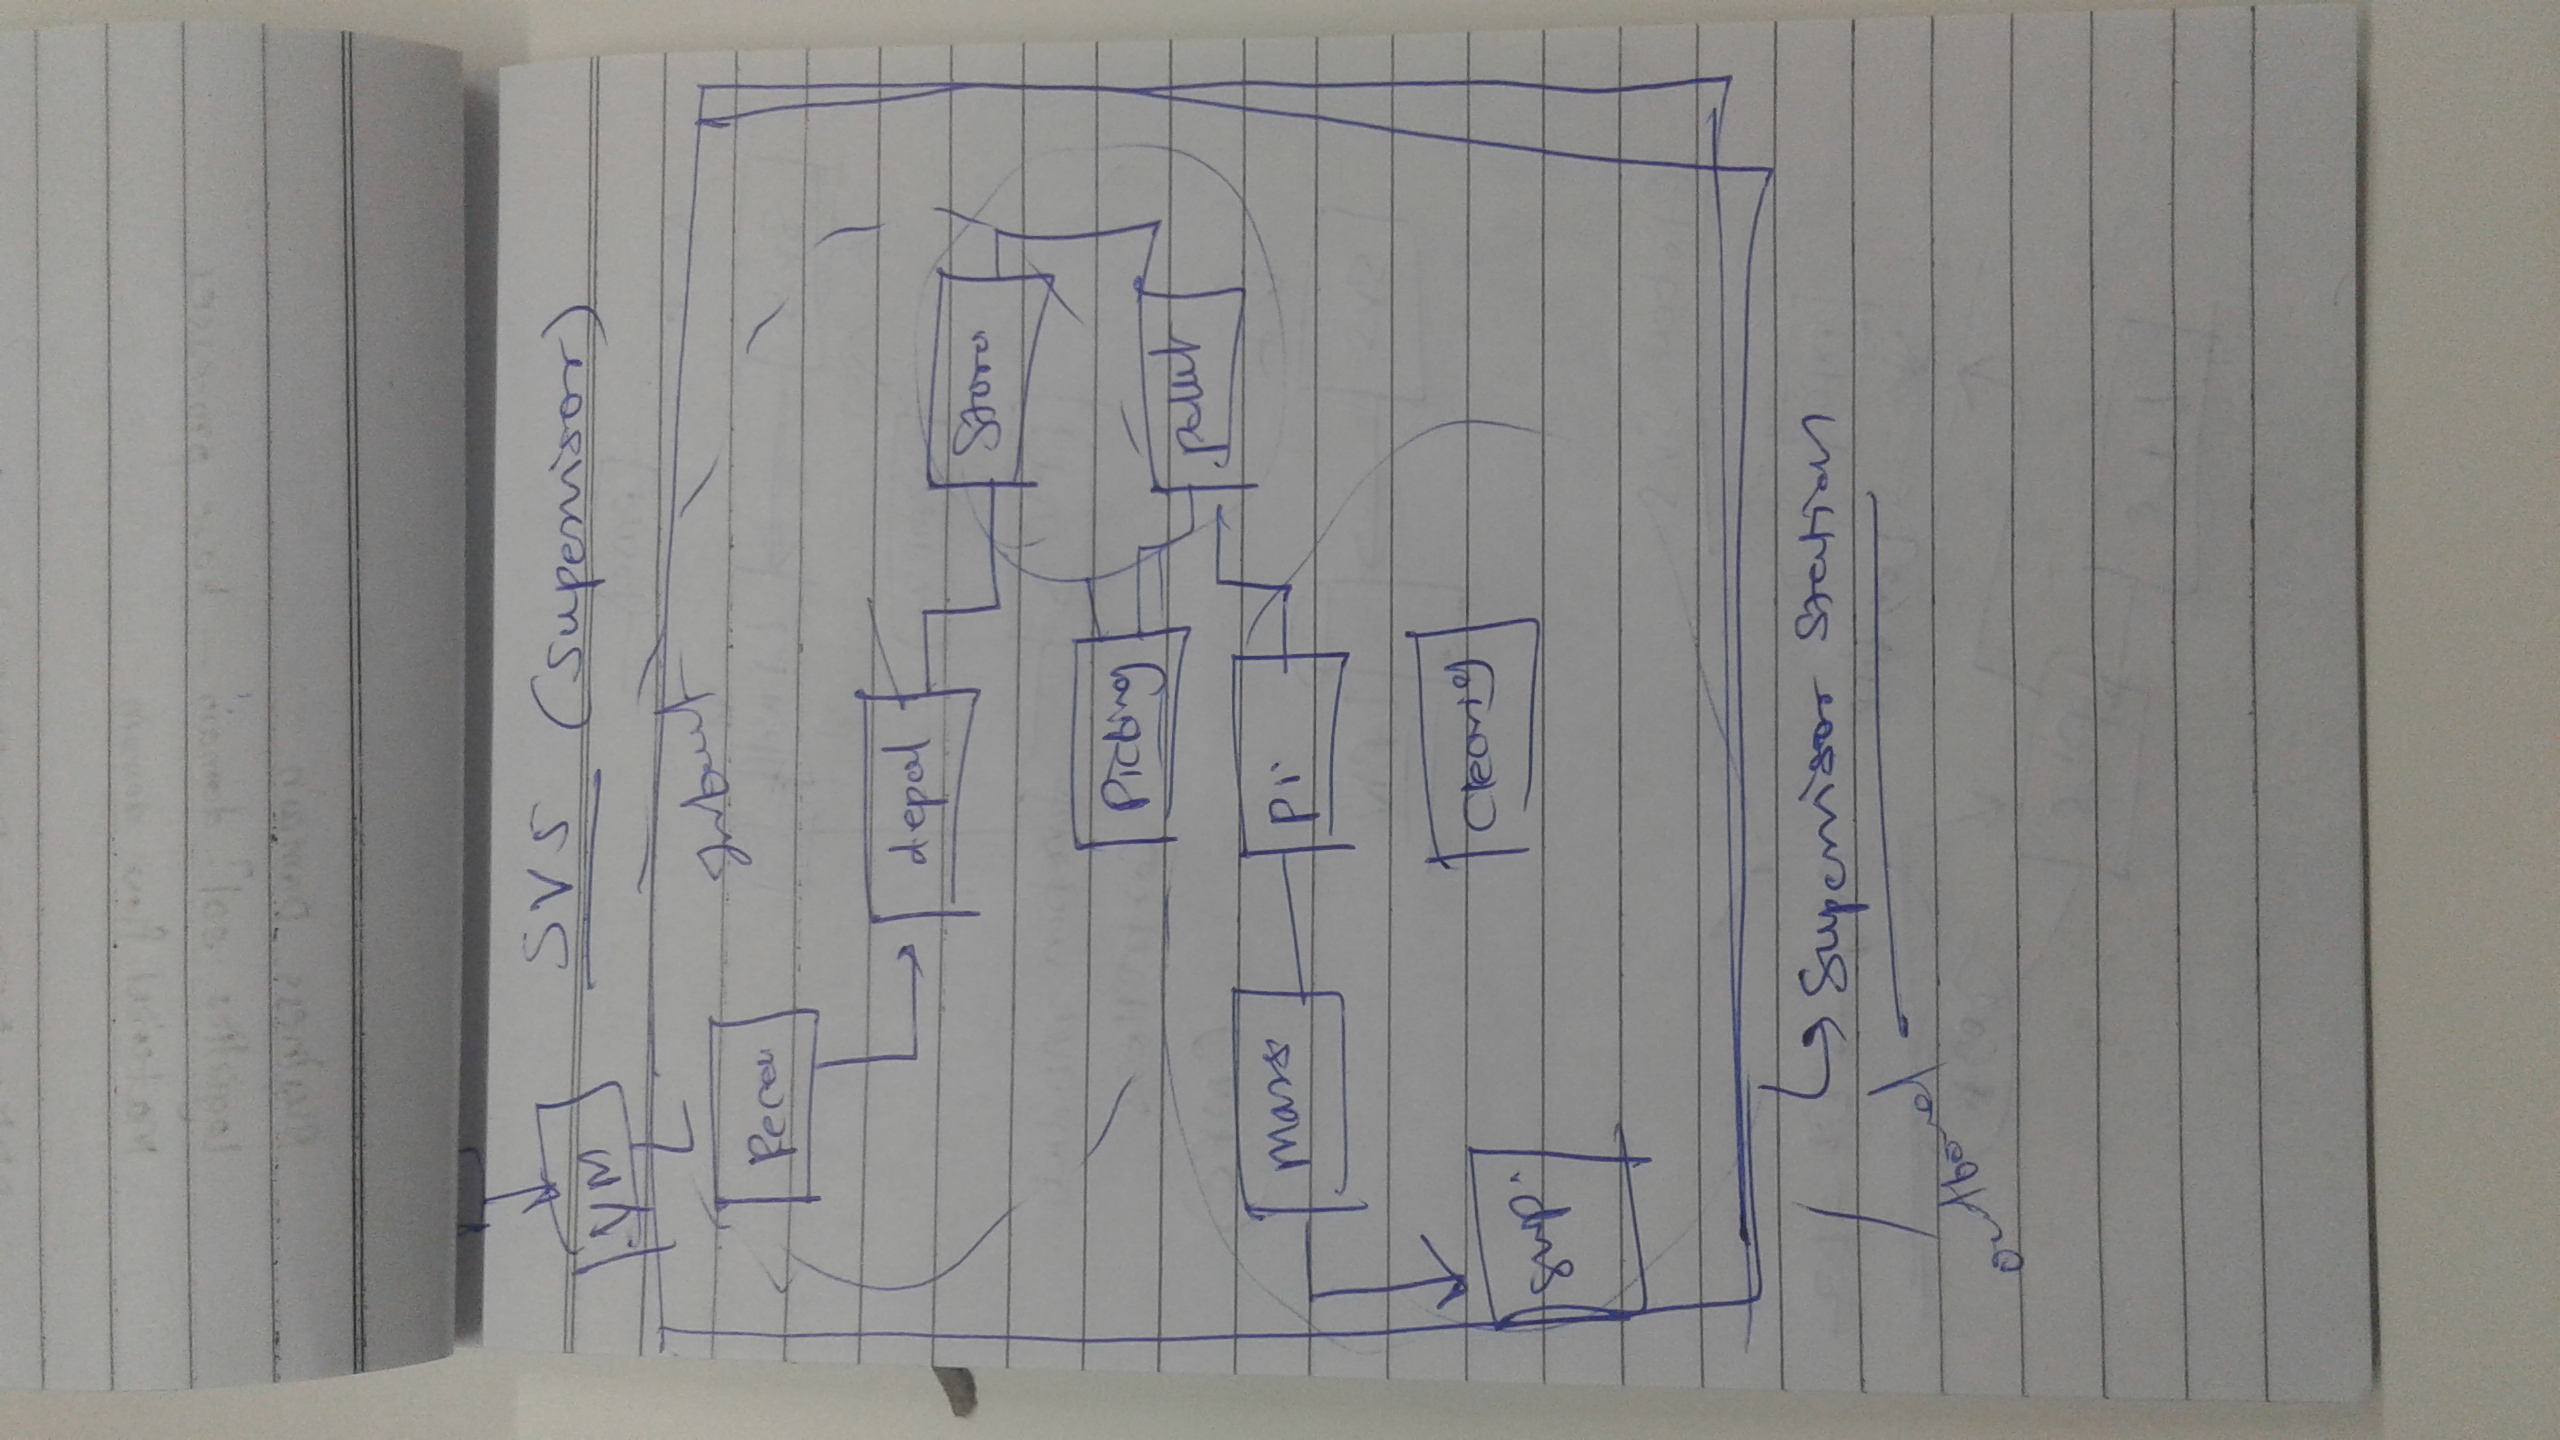 SVS (Supervisor)
YM
Inbout
Recei
depal
Stora
Picking
pallet
Pi
Clearig
Sup.
Supervisor Station
outbond